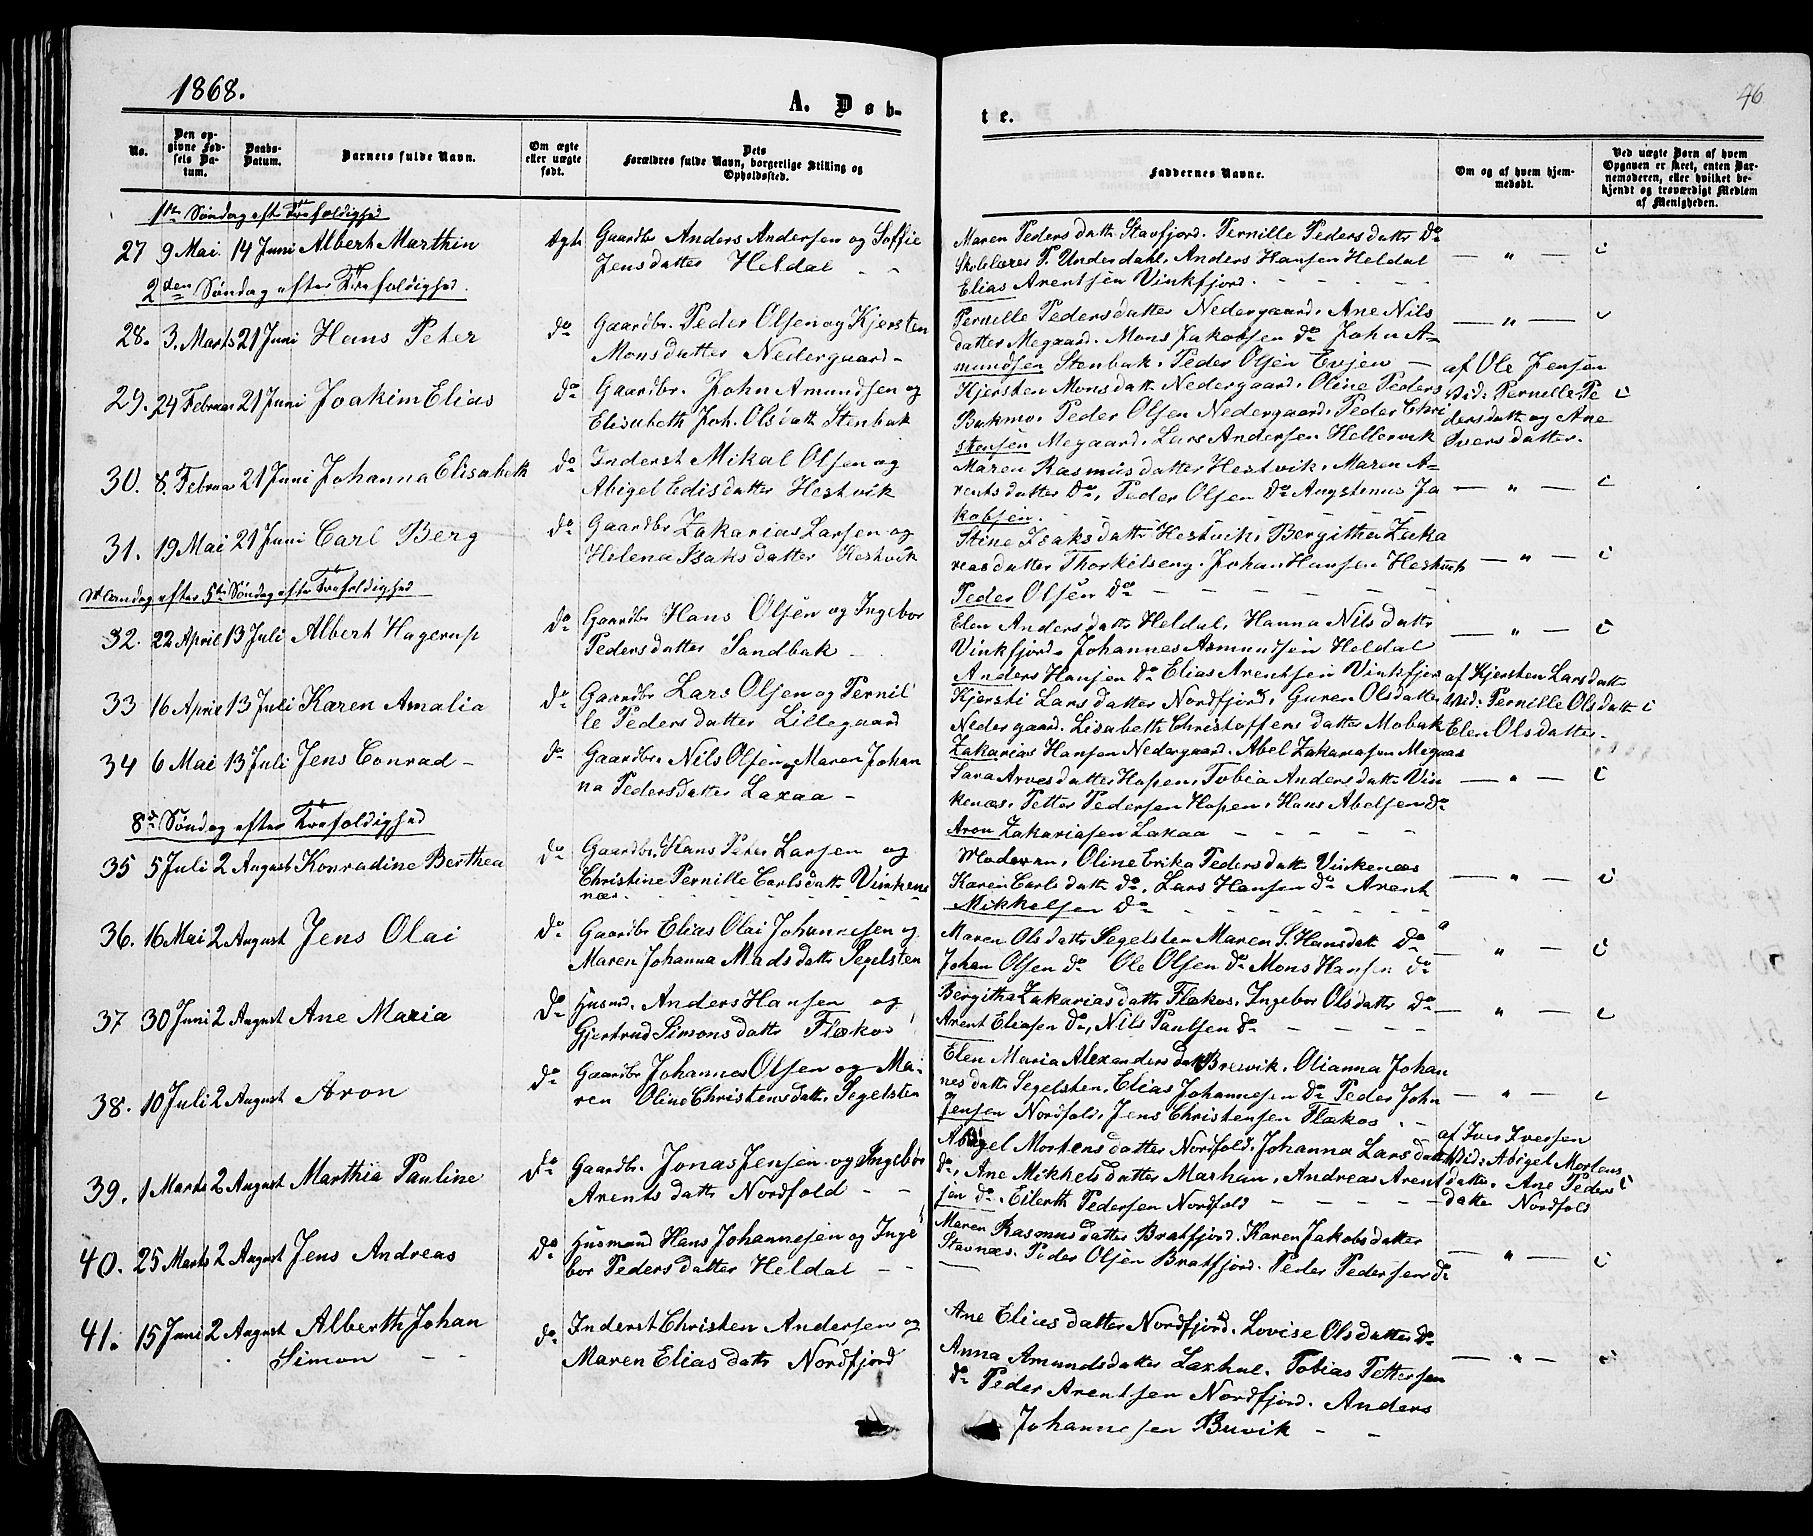 1868.
46
A. Døb-
te.
No.
Den op-
givne Fød-
sels Da-
tum.
Daabs-
Datum.
Barnets fulde Navn.
Om ægte
eller uægte
født.
Dets
Forældres fulde Navn, borgerlige Stilling og
Opholdssted.
Faddernes Navne.
Om og af hvem hjem-
medøbt.
Ved uægte Børn af hvem
Opgaven er skeet, enten Bar-
nemoderen, eller hvilket be-
kjendt og troværdigt Medlem
af Menigheden.
1ste Søndag eft Trefoldighed
27 9 Mai 14 Juni Albert Marthin Ægte Gaardbr Anders Andersen og Soffie
Jensdatter Heldal - -
Maren Pedersdattr Stavfjord. Pernille Pedersdattr Do
Skolelærer P. Underdahl, Anders Hansen Heldal
Elias Arentsen Vinkfjord. - - - -
— " —
2den Søndag efter Trefoldighed.
28. 3. Marts 21 Juni Hans Peter do Gaardbr. Peder Olsen og Kjersten
Monsdatter Nedergaard -
Pernille Pedersdatter Nedergaard, Ane Nils
datter Megaard. Mons Jakobsen do John A-
mundsen Stenbak. Peder Olsen Evjen —
— " —
29. 24 Februar 21 Juni Joakim Elias do Gaardbr. John Amundsen og
Elisabeth Joh. Olsdattr Stenbak
Kjersten Monsdattr Nedergaard, Oline Peders
Bakmo, Peder Olsen Nedergaard. Peder Chri
stensen Megaard. Lars Andersen Hellervik
af Ole Jensen
Vid: Pernille Pe
dersdattr og Ane
Iversdatter.
30. 8. Februar 21 Juni Johanna Elisabeth do Inderst Mikal Olsen og
Abigel Edisdatter Hestvik
Maren Rasmusdatter Hestvik, Maren A-
rentsdatter Do, Peder Olsen Do Augstenus Ja
kobsen. - - - -
— " —
31. 19 Mai 21 Juni Carl Berg do Gaardbr Zakarias Larsen og
Helena Isaksdatter Hestvik
Stine Isaksdattr Hestvik, Bergitha Zaka
reasdatter Thorkelseng. Johan Hansen Hestvik
Peder Olsen Do - - - -
— " —
Mandag efter 5te Søndag efter Trefoldighed
32. 22 April 13 Juli Albert Hagerup do Gaardbr Hans Olsen og Ingebor
Pedersdatter Sandbak -
Elen Andersdattr Heldal, Hanna Nilsdattr
Vinkfjord, Johannes Asmundsen Heldal
Anders Hansen Do Elias Arentsen Vinkfjor
— " —
33 16 April 13 Juli Karen Amalia do Gaardbr Lars Olsen og Pernil
le Pedersdatter Lillegaard
Kjersti Larsdatter Nordfjord, Guren Olsdatter
Nedergaard. Lisabeth Christoffersdatter Mobak
Zakarias Hansen Nedergaard. Abel Zakariasen Megaar
af Kjersten Larsdattr
Vid: Pernille Olsdattr
Elen Olsdatter.
34 6 Mai 13 Juli Jens Conrad - do Gaardbr. Nils Olsen og Maren Johan
na Pedersdatter Laxaa -
Sara Arnesdatter Hopen, Tobia Andersdattr Vin
kenæs. Petter Pedersen Hopen, Hans Abelsen do
Aron Zakariasen Laxaa - - - -
— " —
8de Søndag efter Trefoldighed
35 5 Juli 2 August Konradine Berthea do Gaardbr. Hans Peter Larsen og
Christine Pernille Carlsdattr Vinken
næs. - - - -
Moderen, Oline Erika Pedersdattr Vinkenæs
Karen Carlsdattr do. Lars Hansen do Arent
Mikkelsen Do - - - -
— " —
36. 16 Mai 2 August Jens Olai do Gaardbr Elias Olai Johannesen og
Maren Johanna Madsdattr Segelsten
Maren Olsdattr Segelsten Maren S. Hansdatt Do
Johan Olsen do Ole Olsen do Mons Hansen do
— " —
37 30 Juni 2 August Ane Maria do Husmd. Anders Hansen og
Gjertrud Simonsdattr Flækos
Bergitha Zakariasdattr Flækos. Ingebor Olsdatter do
Arent Eliasen do, Nils Paulsen do - - - -
— " —
38. 10 Juli 2 August Aron do Gaardbr Johannes Olsen og Ma-
ren Oline Christensdattr. Segelsten
Elen Maria Alexandersdat Brevik. Olianna Johan
nesdattr Segelsten. Elias Johannesen Do Peder John
Jensen Nordfold. Jens Christensen Flækos. -
— " —
39. 1 Marts 2 August Marthia Pauline do Gaardbr. Jonas Jensen og Ingebor
Arentsdattr Nordfold - -
Abigel Mortensdatter Nordfold, Johanna Larsdatt
do, Ane Mikkelsdatter Marhan, Andreas Arent
sen do. Eilerth Pedersen Nordfold - - - -
af Iver Iversen
Vid: Abigel Mortens
datter, Ane Peders
datter Nordfold
40. 25 Marts 2 August Jens Andreas do Husmand Hans Johannesen og Inge
bor Pedersdatter Heldal - -
Maren Rasmusdatter Bratfjord. Karen Jakobsdatter
Stavnæs. Peder Olsen Bratfjord. Peder Pedersen do
— " —
41. 15 Juni 2 August Alberth Johan do Inderst Christen Andersen og
Simon - - Maren Eliasdattr Nordfjord
Ane Eliasdatter Nordfjord. Lovise Olsdatter do
Anna Amundsdatter Laxhul. Tobias Pettersen
do Peder Arentsen Nordfjord. Anders
Johannesen Buvik - -
— " —